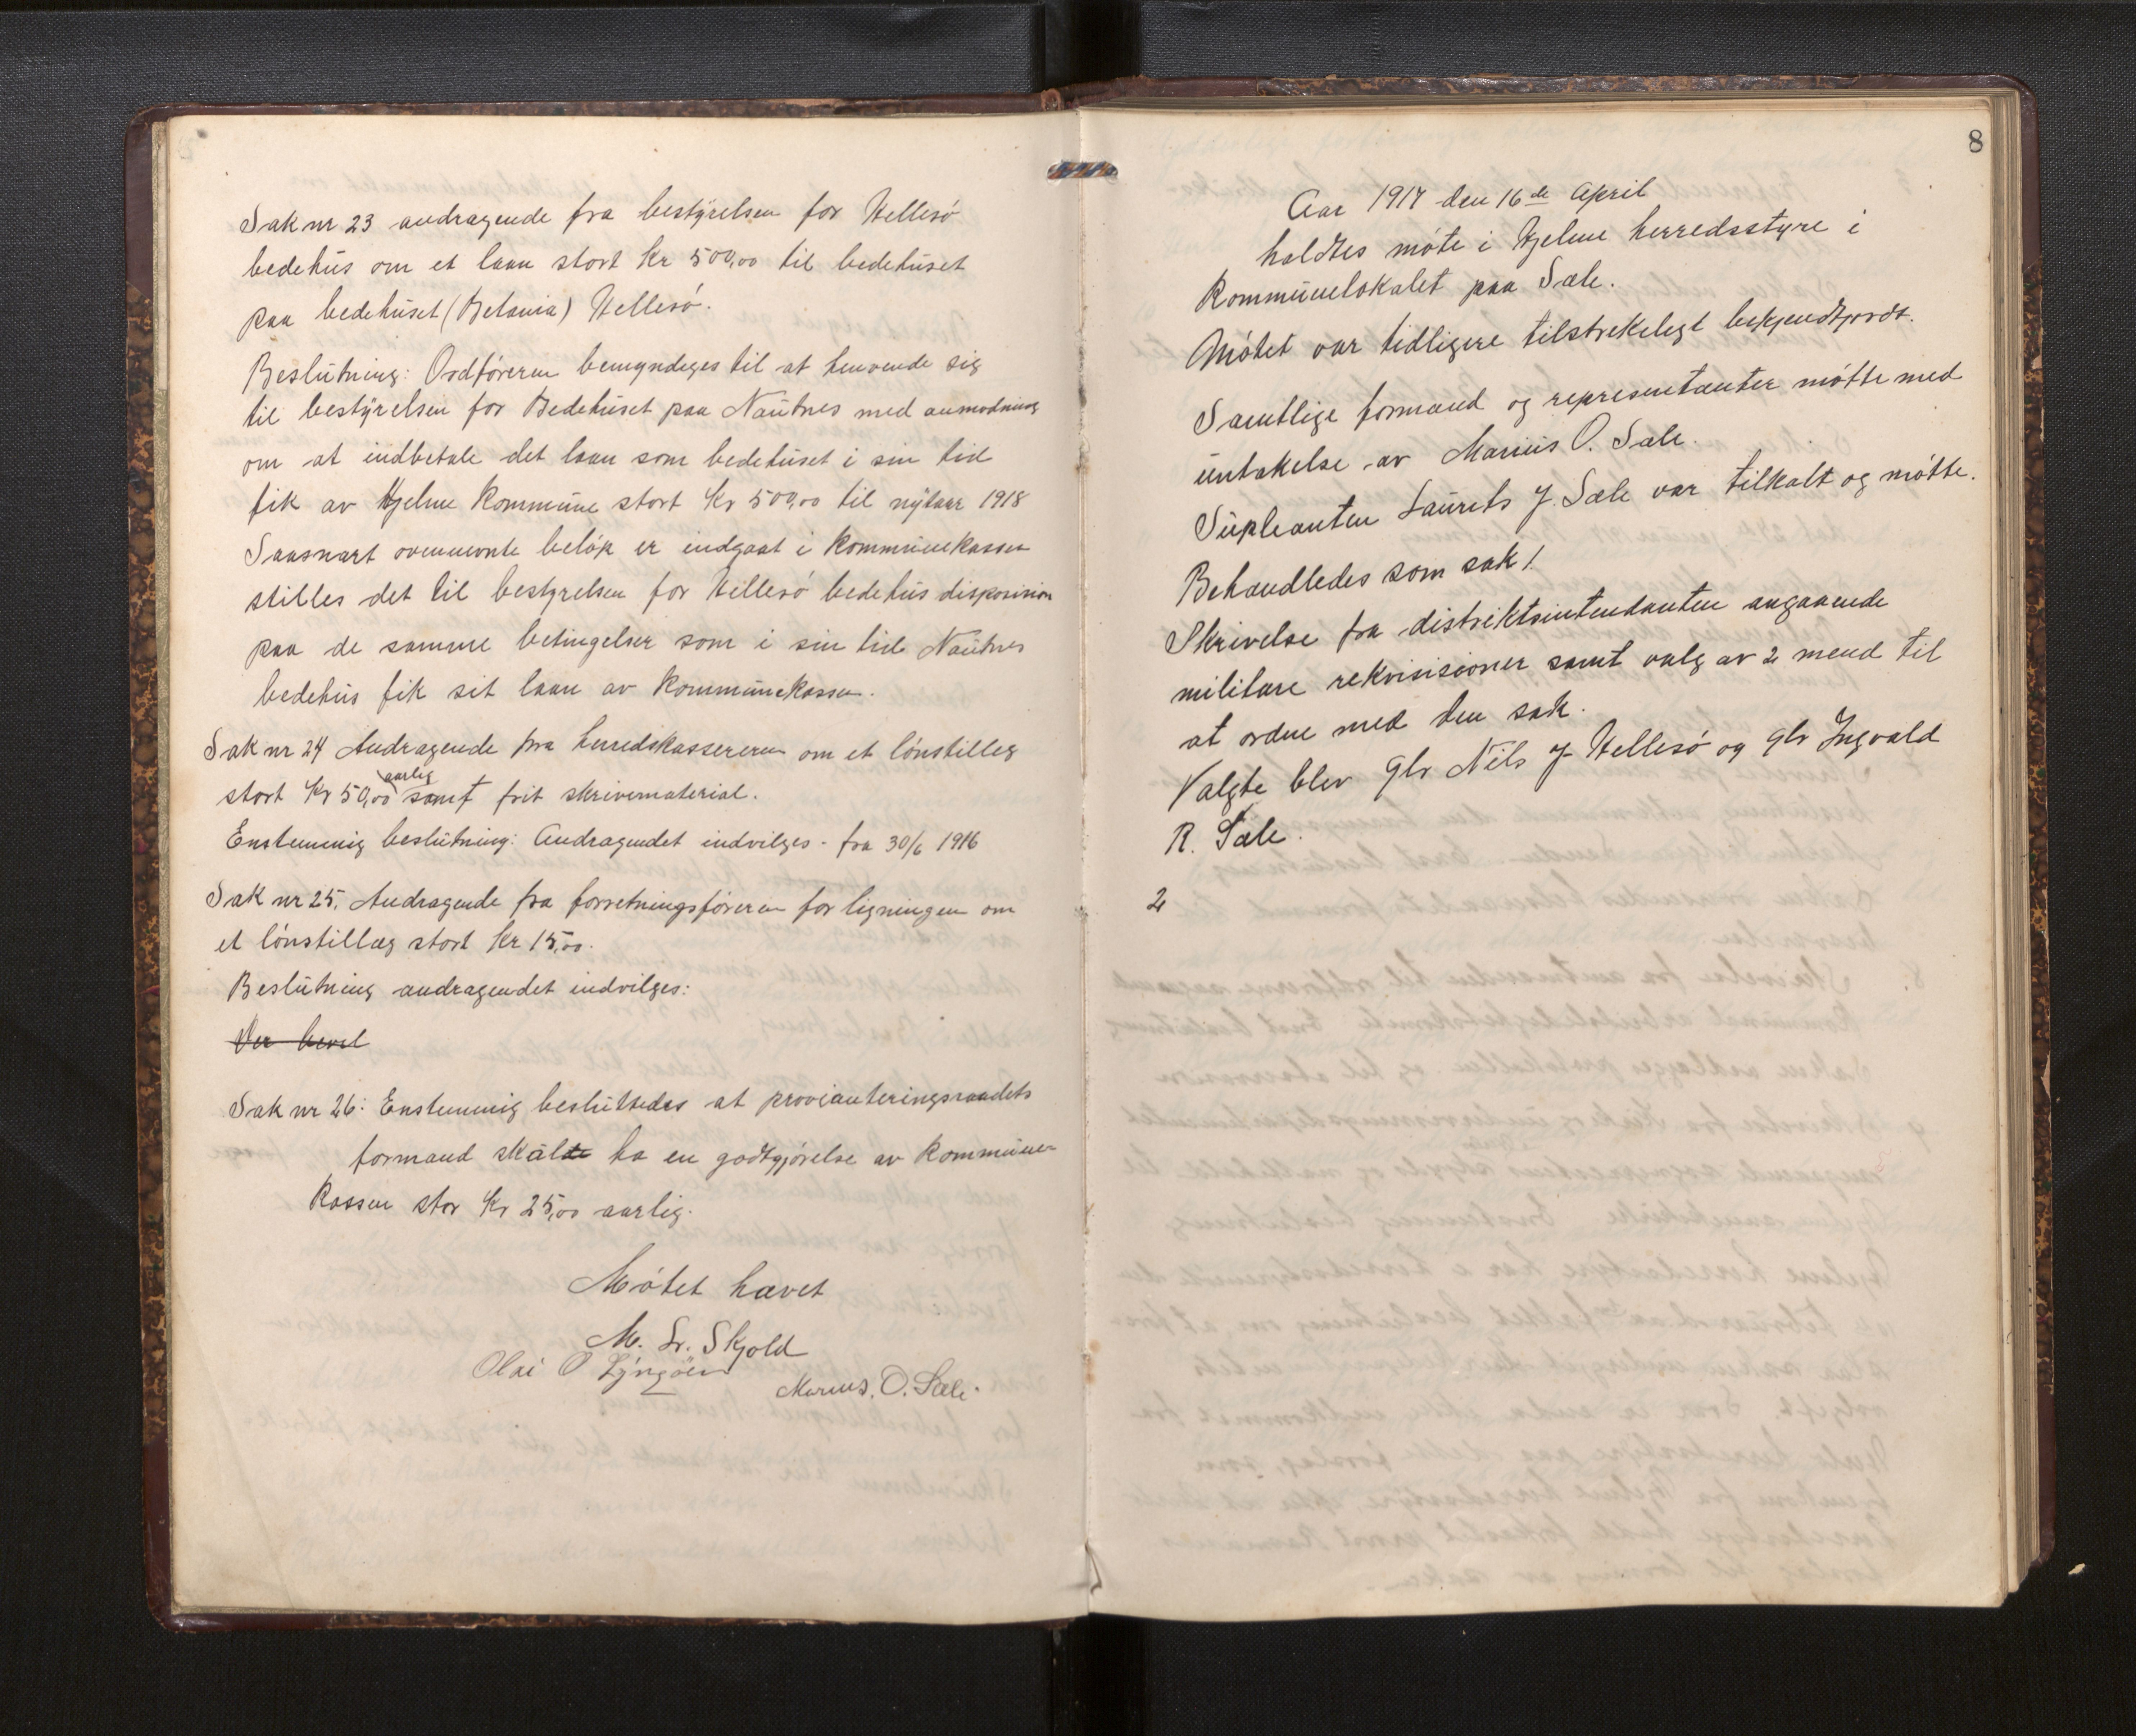 Sak nr 23 andragende fra bestyrelsen for Hellesö
bedehus om et laan stort Kr 500,00 til bedehuset
paa bedehuset (Betania) Hellesö.
Beslutning: Ordföreren bemyndeges til at henvende sig
til bestyrelsen for Bedehuset paa Nautnes med anmodning
om at indbetale det laan som bedehuset i sin tid
fik av Hjelme Kommune stort Kr 500,00 til nytaar 1918
Saasnart ovennevnte belöp er indgaat i Kommunekassen
stilles det til bestyrelsen for Hellesö bedehus disposision
paa de samme betingelser som i sin tid Nautnes
bedehus fik sit laan av Kommunekassen.
Sak nr 24 Andragende fra herredskassereren om et lönstilleg
aarlig
stort Kr 50,00 samt frit skrivematerial.
Enstemmig beslutning: Andragendet indvilges - fra 30/6 1916
Sak nr 25. Andragende fra forretningsföreren for ligningen om
et lönstillæg stort Kr 15,00.
Beslutning andragendet indvilges:
Sak nr 26: Enstemmig besluttedes at provianteringsraadets
formand skal ha en godtgjörelse av Kommune-
Kassen stor Kr 25,00 aarlig.
Mötet hævet
M. Sr. Skjold
Olai O Lyngöen
Marius. O. Sæle.
8
Aar 1917 den 16de April
holdtes möte i Hjelme herredsstyre i
Kommunelokalet paa Sæle.
Mötet var tidligere tilstrekelegt bekjendtgjordt.
Samtlige formænd og representanter mötte med
untakelse av Marius O. Sæle.
Supleanten Laurits J. Sæle var tilkalt og mötte.
Behandledes som sak 1.
Skrivelse fra distriktsintendanten angaaende
militære rekvisisioner samt valg av 2 mend til
at ordne med den sak.
Valgte blev Gbr Nils J Hellesö og gbr Ingvald
R. Sæle.
2